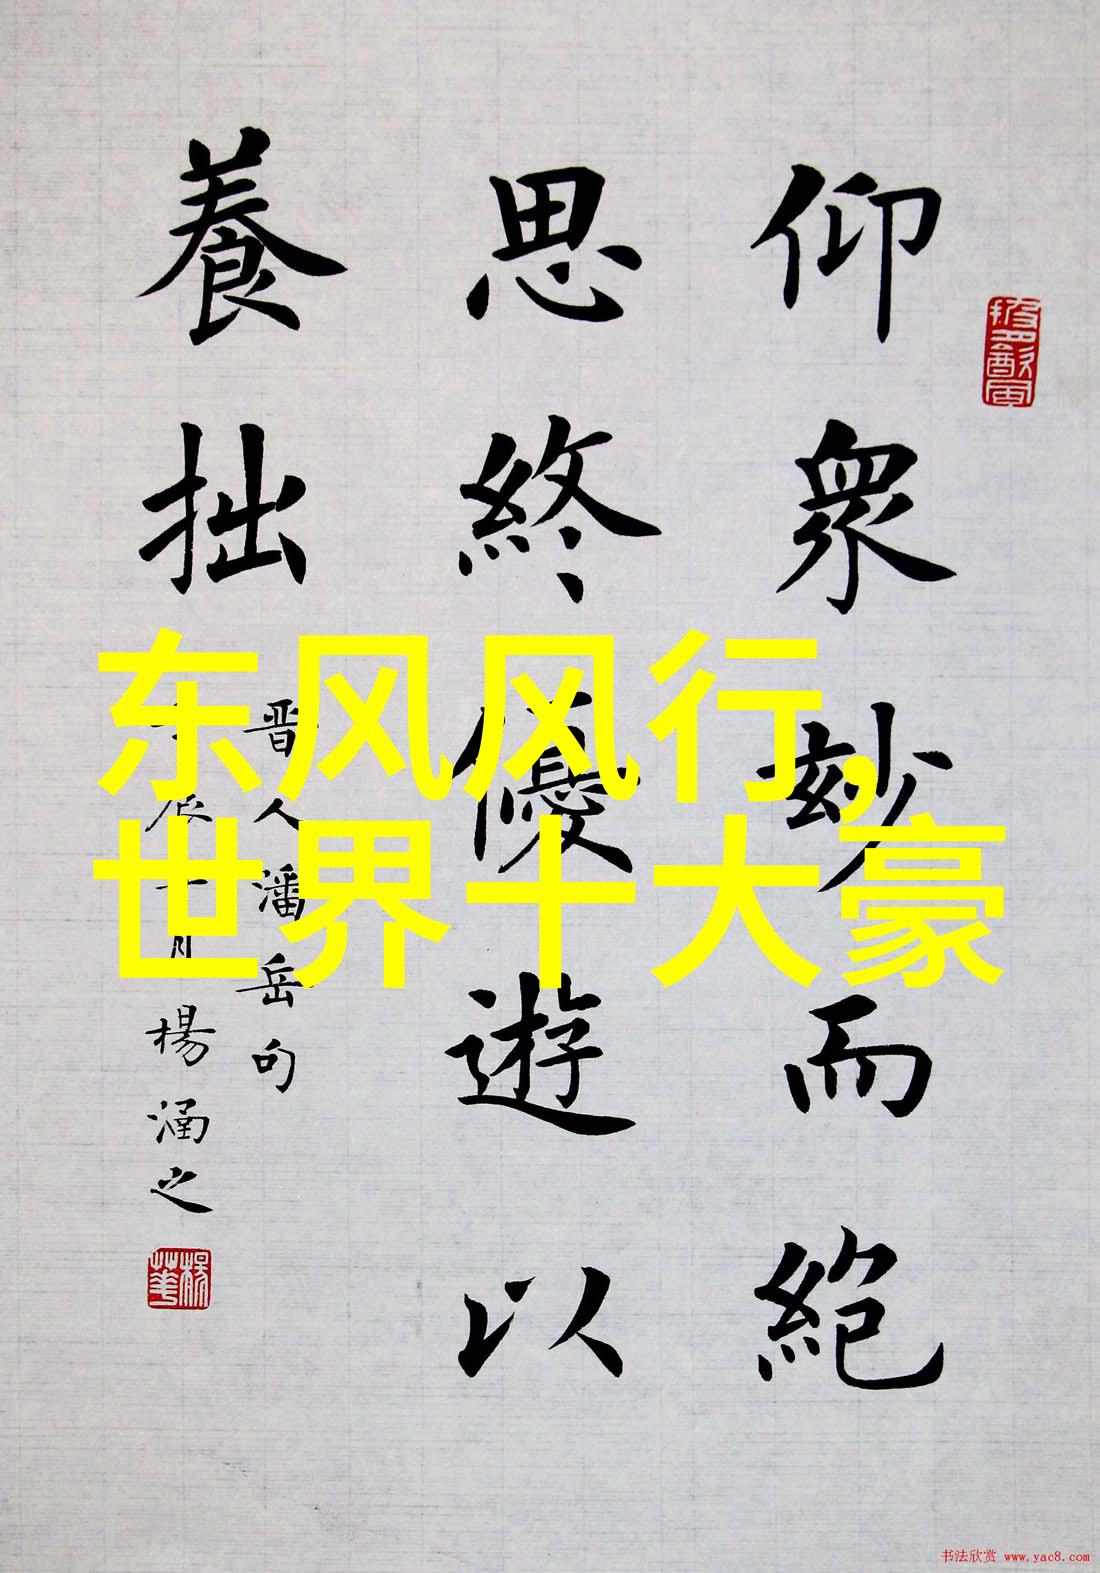 仰衆妙而絶
思終優遊以
養拙
晋人潘岳句
楊涵之
东风风行,
世界十大豪
书法欣赏 www.yac8.com